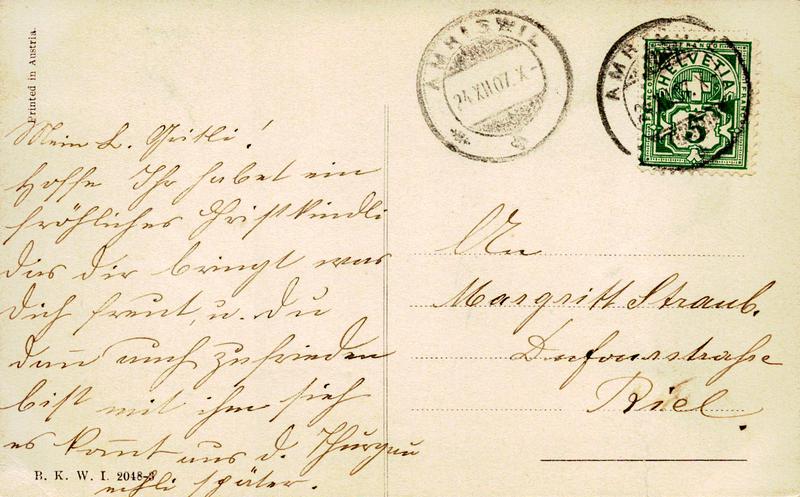 Printed in Austria.
AMRISWIL
AMRISWIL
HELVETIA
FRANCO
5
Mein L. Gritli!
Hoffe Ihr habet ein
fröhliches Christkindli
das dir bringt was
dich freut, u. du
dann auch zufrieden
bist mit ihm sieh
es kommt aus d. Thurgau
später.
B. K. W. I. 2048-3
An
Margritt Straub.
Dufourstrasse
Biel.